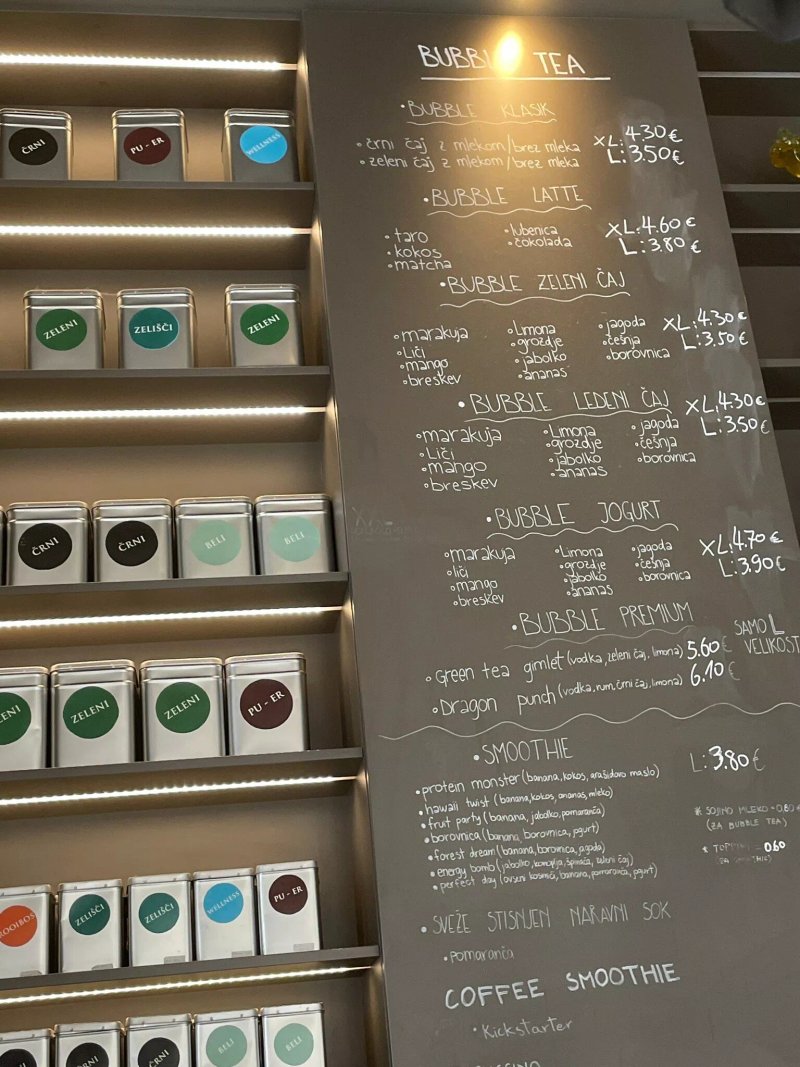 BUBBLE TEA
• BUBBLE KLASIK
∘ črni čaj z mlekom/brez mleka
∘ zeleni čaj z mlekom/brez mleka
XL: 4.30 €
L: 3.50 €
• BUBBLE LATTE
∘ taro
∘ kokos
∘ matcha
∘ lubenica
∘ čokolada
XL: 4.60 €
L: 3.80 €
• BUBBLE ZELENI ČAJ
∘ marakuja
∘ Liči
∘ mango
∘ breskev
∘ Limona
∘ grozdje
∘ jabolko
∘ ananas
∘ jagoda
∘ češnja
∘ borovnica
XL: 4.30 €
L: 3.50 €
• BUBBLE LEDENI ČAJ
∘ marakuja
∘ Liči
∘ mango
∘ breskev
∘ Limona
∘ grozdje
∘ jabolko
∘ ananas
∘ jagoda
∘ češnja
∘ borovnica
XL: 4.30 €
L: 3.50 €
• BUBBLE JOGURT
∘ marakuja
∘ liči
∘ mango
∘ breskev
∘ Limona
∘ grozdje
∘ jabolko
∘ ananas
∘ jagoda
∘ češnja
∘ borovnica
XL: 4.70 €
L: 3.90 €
• BUBBLE PREMIUM
SAMO L
VELIKOST
∘ Green tea gimlet (vodka, zeleni čaj, limona) 5.60 €
∘ Dragon punch (vodka, rum, črni čaj, limona) 6.10 €
• SMOOTHIE
L: 3.80 €
• protein monster (banana, kokos, arašidovo maslo)
• hawaii twist (banana, kokos, ananas, mleko)
• fruit party (banana, jabolko, pomaranča)
• borovnica (banana, borovnica, jogurt)
• forest dream (banana, borovnica, jagoda)
• energy bomb (jabolko, konoplja, špinača, zeleni čaj)
• perfect day (ovseni kosmiči, banana, pomaranča, jogurt)
* SOJINO MLEKO = 0.80 €
(ZA BUBBLE TEA)
* = 0.60
• SVEŽE STISNJEN NARAVNI SOK
• pomaranča
COFFEE SMOOTHIE
• Kickstarter
ČRNI
PU - ER
WELLNESS
ZELENI
ZELIŠČI
ZELENI
ČRNI
ČRNI
BELI
BELI
ZELENI
ZELENI
ZELENI
PU - ER
ROOIBOS
ZELIŠČI
ZELIŠČI
WELLNESS
PU - ER
ČRNI
ČRNI
BELI
BELI